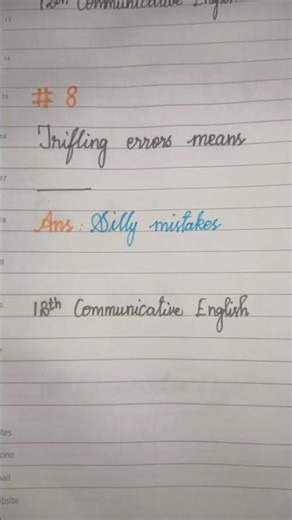 12th Communicative English
13
14
15
# 8
16
Trifling errors means
17
18
Ans: Silly mistakes
12th Communicative English